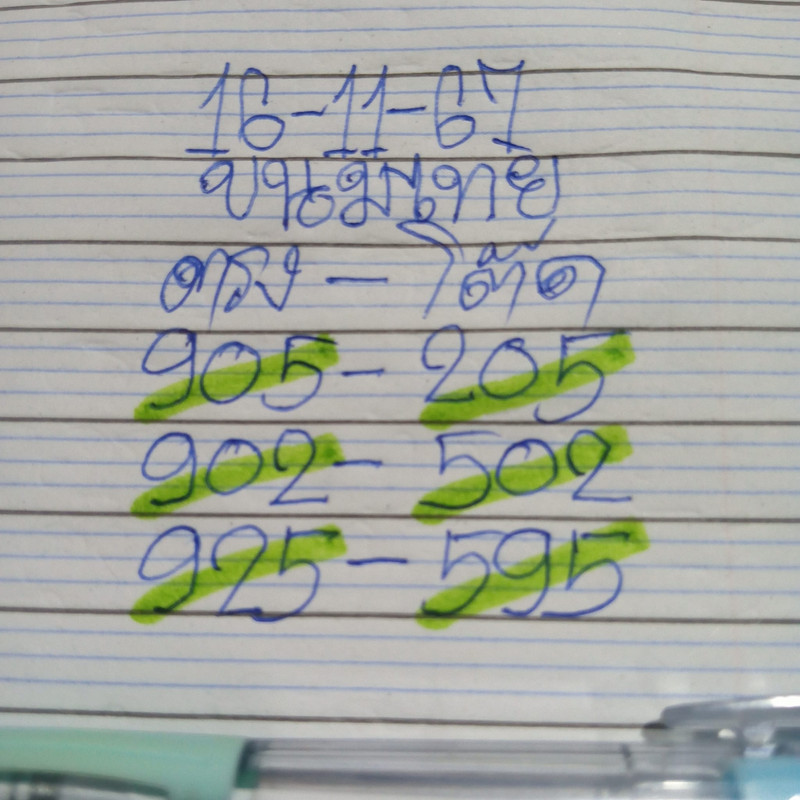 16-11-67
ขนมไทย
ตรง - โต๊ด
905 - 205
902 - 502
925 - 595